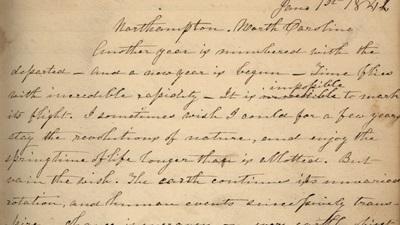 Jany 1st 1842
Northampton, North Carolina
Another year is numbered with the
departed – and a new year is begun – Time flies
with incredible rapidity – It is impossible to mark
its flight. I sometimes wish I could for a few years
stay the revolutions of nature, and enjoy the
springtime of life longer than is allotted. But
vain the wish. The earth continues its unvaried
rotation, and human events successively trans-